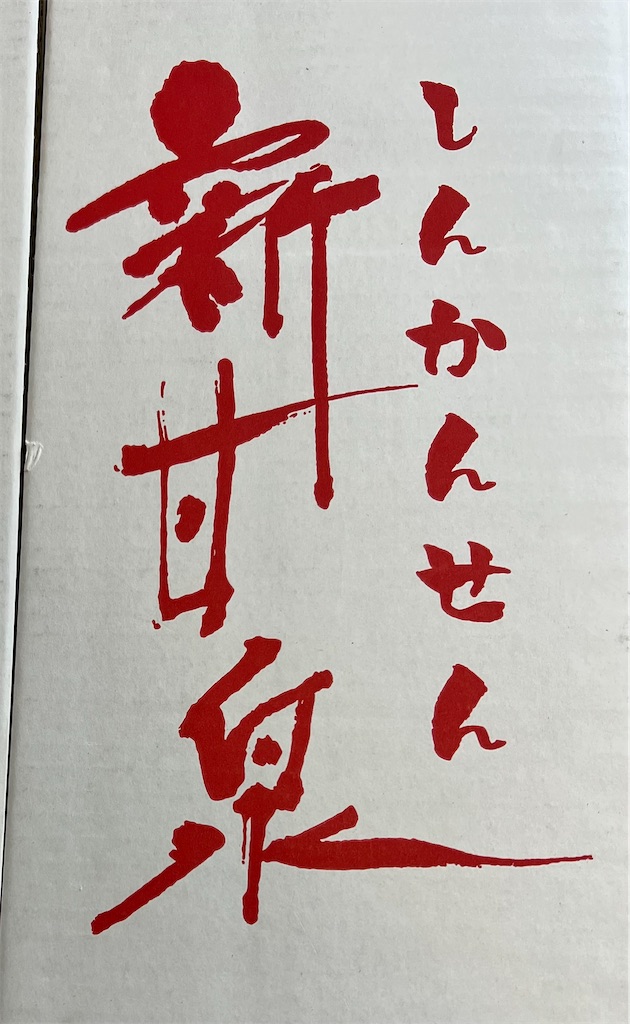 しんかんせん
新甘泉